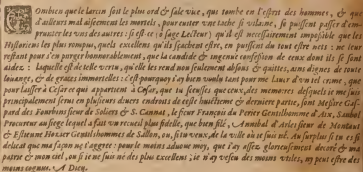 COmbien que le larcin soit le plus ord & sale vice, qui tombe en l'esprit des hommes, & que
d'ailleurs mal aisement les mortels, pour euiter vne tache si vilaine, se puissent passer d'em-
prunter les vns des autres: si est-ce (ô sage Lecteur) qu'il est necessairement impossible que les
Historiens les plus rompus, quels excellens qu'ils sçachent estre, en puissent du tout estre nets: ne leur
restant pour s'en purger honnorablement, que la candide & ingenue confession de ceux dont ils se sont
aidez. Laquelle est de telle vertu, qu'elle les rend non seulement absous & quittes, ains dignes de toute
louange, & de graces immortelles: c'est pourquoy i'ay bien voulu tant pour me lauer d'vn tel crime, que
pour laisser à Cesar ce qui appartient à Cesar, que tu sceusses que ceux, des memoires desquels ie me suis
principalement serui en plusieurs diuers endroits de ceste huictieme & derniere partie, sont Messire Gas-
pard des Fourbins sieur de Soliers & S. Cannat, le sieur François du Perier Gentilhomme d'Aix, Sanbol
Procureur au siege lequel a fait vn recueil plus fidelle, que bien filé, Annibal d'Arles sieur de
& Estienne Hozier Gentilshommes de Sallon, ou, si tu veux, de la ville où ie suis né. Au surplus si tu es si
delicat que ma façon ne t'aggree: pour le moins aduoue moy, que i'ay assez glorieusement decoré & ma
patrie & mon ciel, ou si ie ne suis ne des plus excellens; ie n'ay vescu des moins vtiles, ny peut estre des
moins cognus. A Dieu.